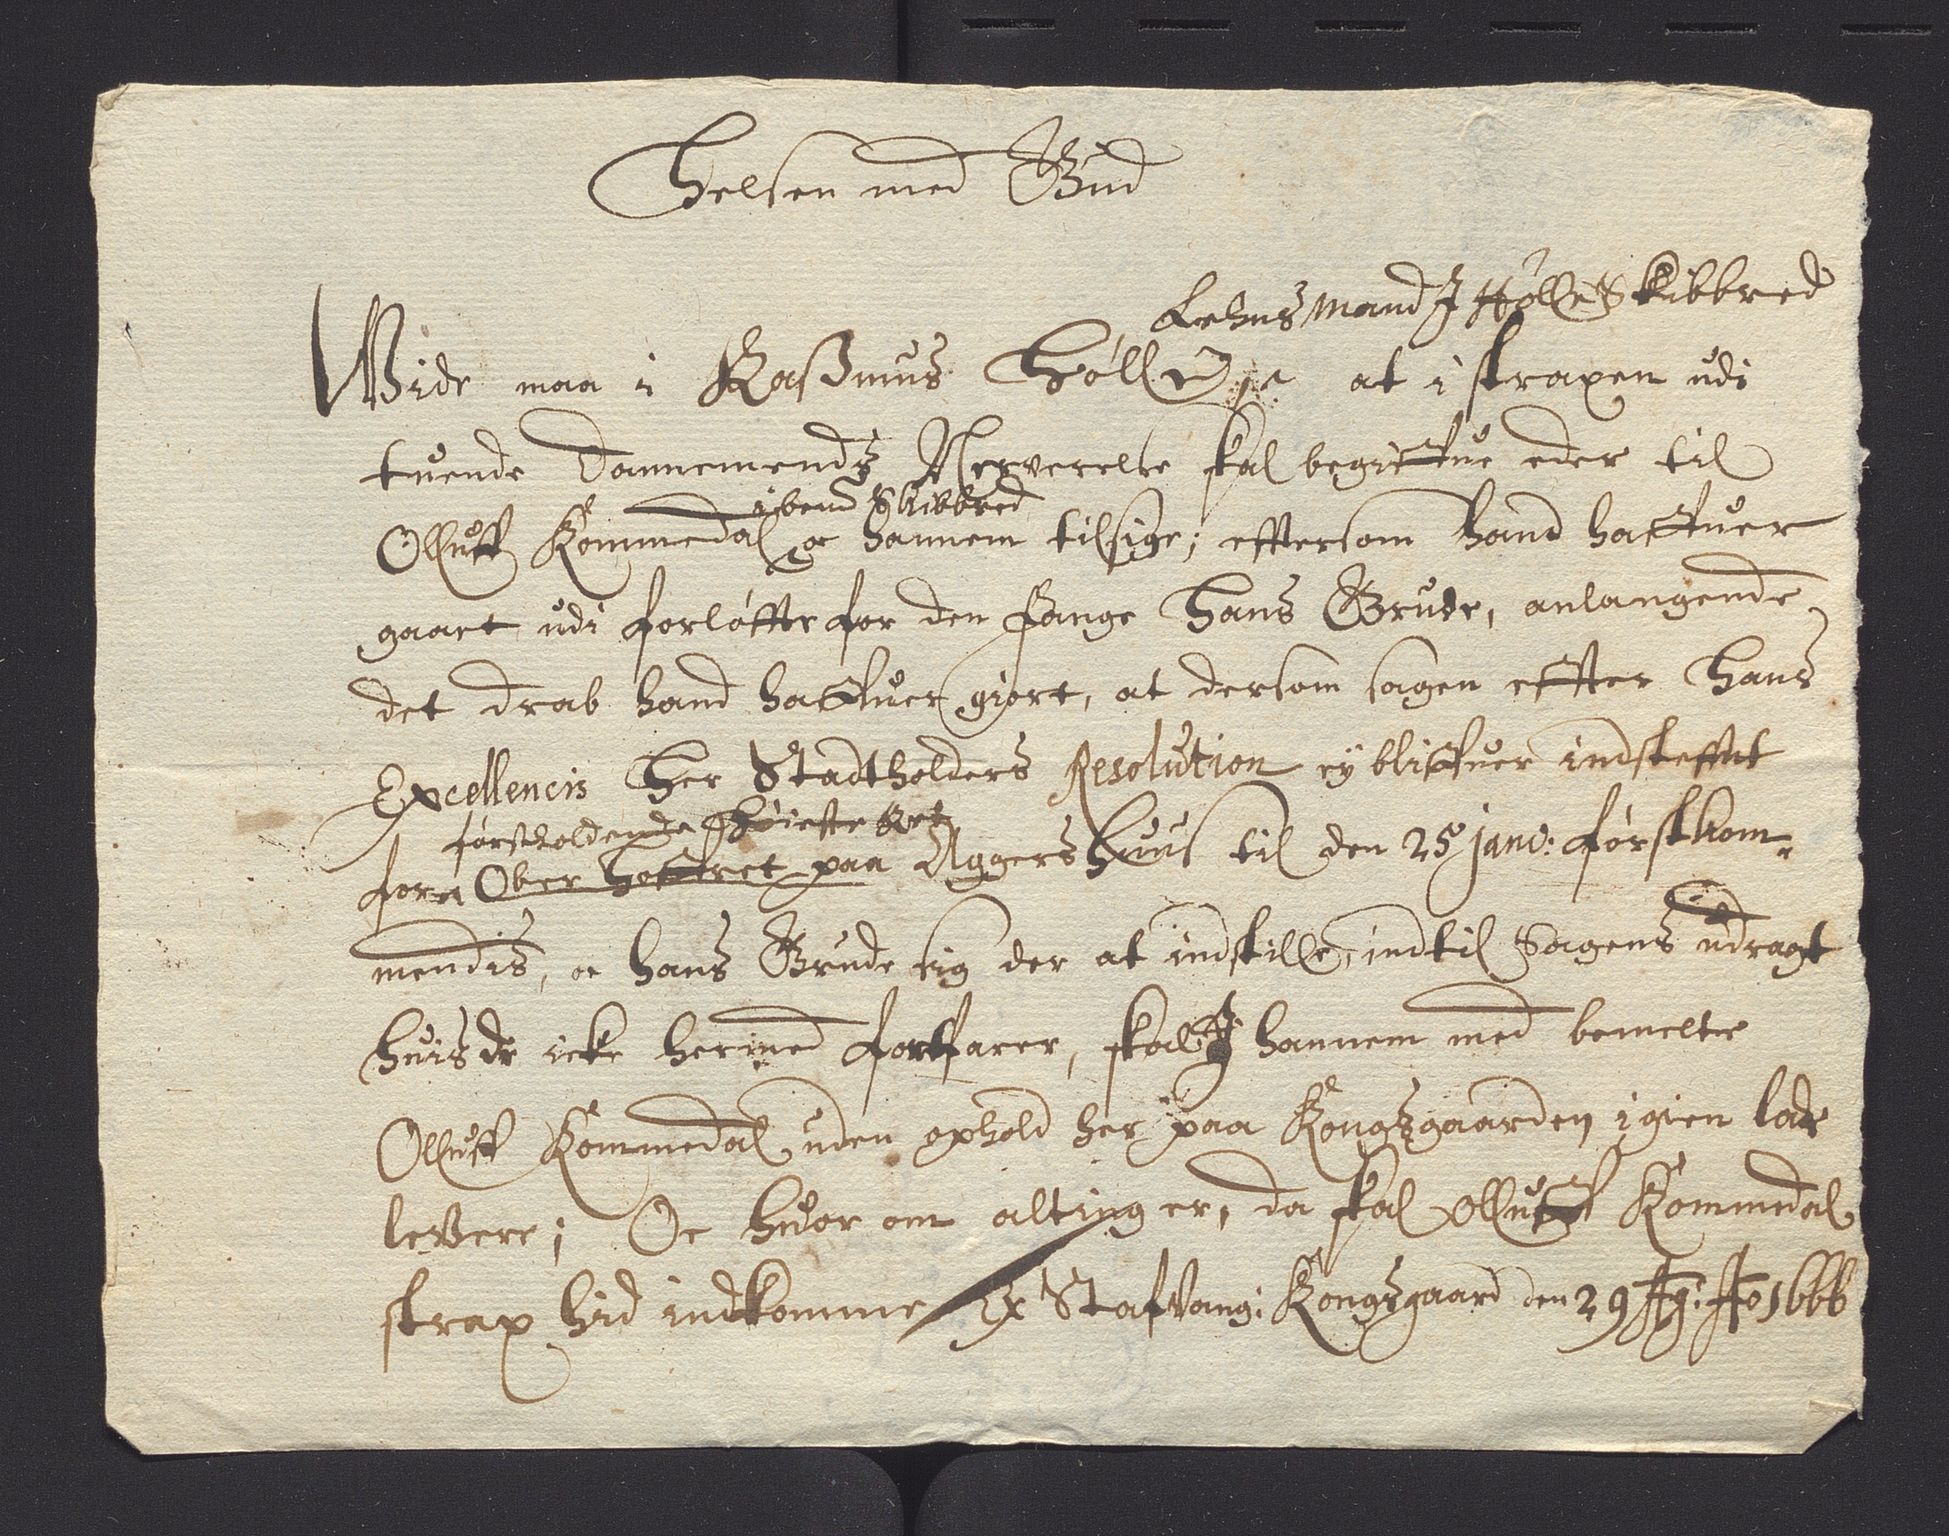 Helsen med Gud
Lehnsmand J Hølle Skibbred
Wide maa i Raßmus Hølle at i straxen udi
tuende Dannemends Nerverelse skal begiffue eder til
ibend Skibbred
Olluff Kommedal oc hannem tilsige; efftersom hand haffuer
gaaet udi forløffte for den fange Hans Grude, anlangende
det drab hand haffuer giort, at dersom sagen effter Hans
Excellencis Her Stadtholders Resolution ey bliffuer indsteffnt
førstholdende Høieste Ret
for Ober hoffret paa Aggershuus til den 25 janu: førstkom-
mendis, oc Hans Grude sig der at indstille, indtil Sagens udragt
huis de icke hermed fortfarer, skal J hannem med bemelte
Olluff Kommedal uden ophold her paa Kongsgaarden igien lade
levere; Oc huor om alting er, da skal Olluff Kommedal
strax hid indkomme Ex Stafvang: Kongsgaard den 29 Ag: Ao 1666